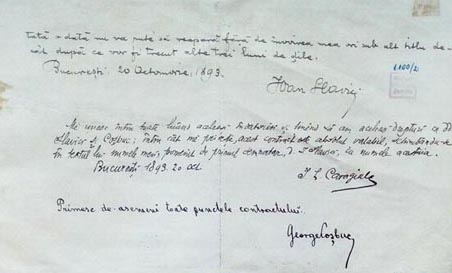 tată o dată nu va pute să reapară fără de învoirea mea și sub alt titlu de-
cât după ce vor fi trecut alte trei luni de zile.
București, 20 Octomvrie, 1893.
Ioan Slavici
1.100/21
Me unesc întru toate luând aceleași îndatoriri și ținând să am aceleași drepturi ca DD
Slavici și Coșbuc; întru cât mă privește, acest contract este absolut valabil, schimbându-se
în textul lui numele meu, pomenit de primul semnatar, d. I. Slavici, la numele acestuia.
București 1893. 20 oct.
I. L. Caragiale
Primesc de-asemeni toate punctele contractului.
George Coșbuc